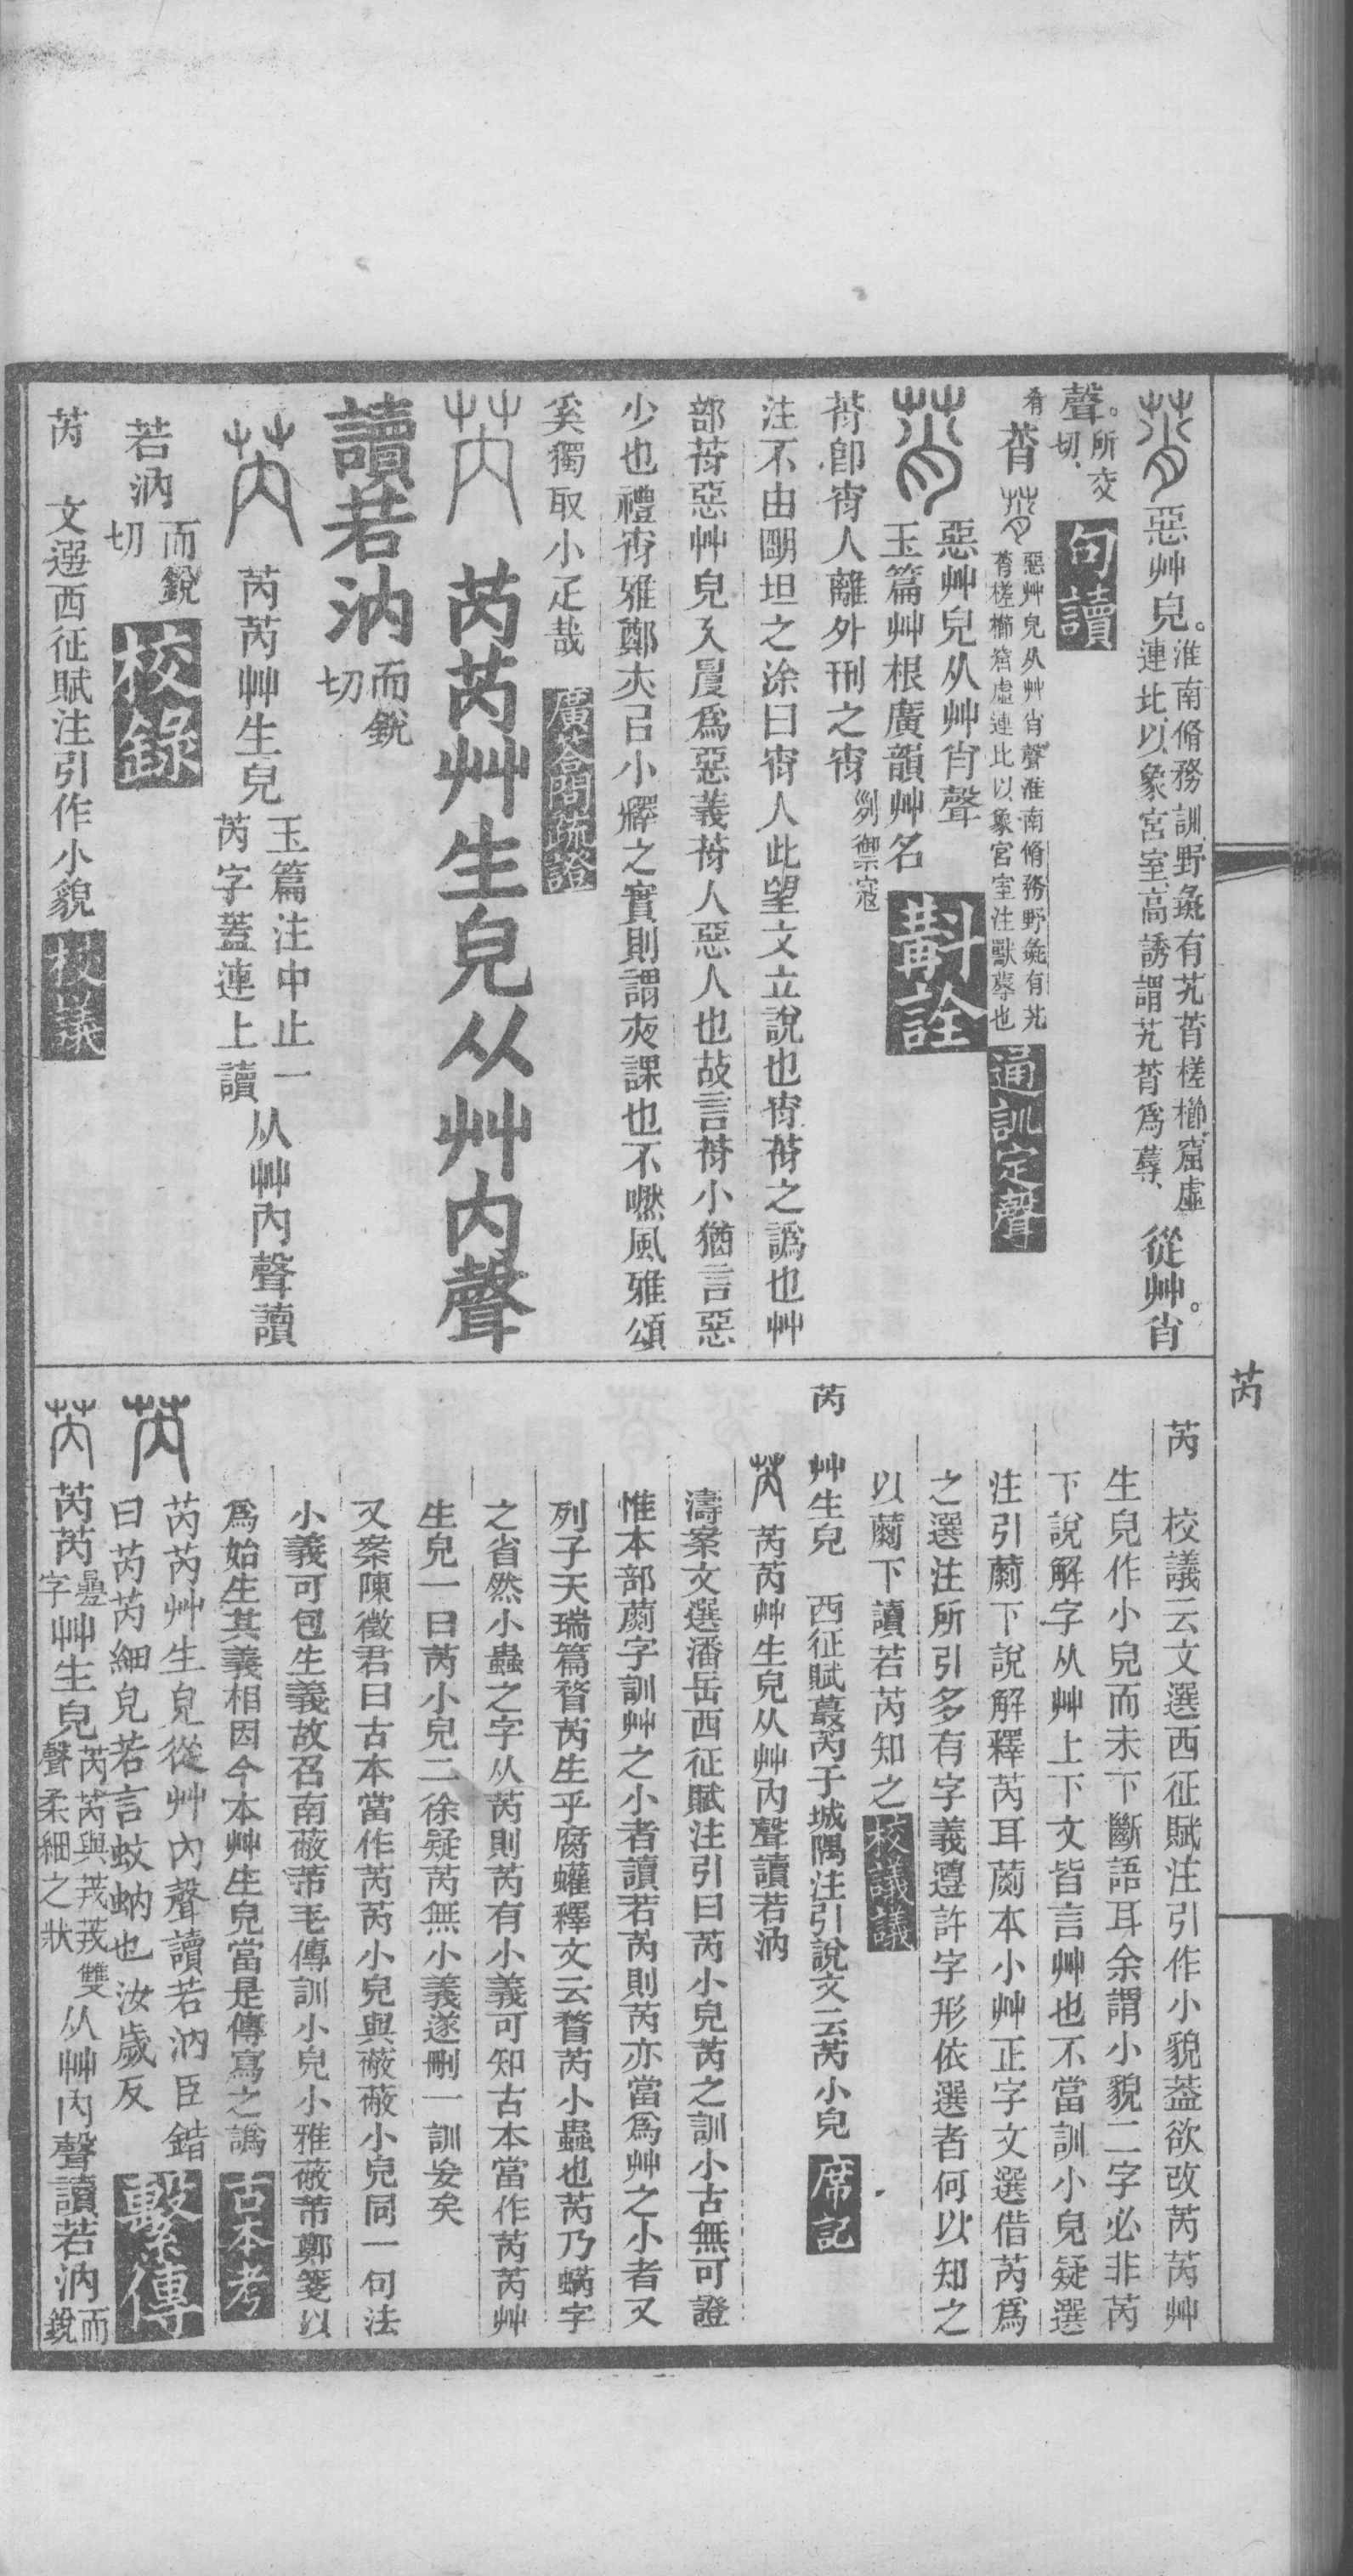 惡艸皃。淮南脩務訓野彘有艽莦槎櫛窟虛
連比以象宮室高誘謂艽莦爲蓐、從艸。肖
聲。所交切、句讀
莦 惡艸皃从艸肖聲淮南脩務野彘有艽
莦槎櫛窟虛連比以象宮室注獸蓐也 通訓定聲
惡艸皃从艸肖聲
玉篇艸根廣韻艸名 斠詮
莦卽宵人離外刑之宵 列禦寇
注不由明坦之涂曰宵人此望文立說也宵莦之譌也艸
部莦惡艸皃
爲惡義莦人惡人也故言莦小猶言惡
少也禮宵雅鄭
小釋之實則謂夜課也不嘫風雅頌
奚獨取小疋哉 廣荅問疏證
芮芮艸生皃从艸內聲
讀若汭 而銳切
芮芮艸生皃 玉篇注中止一
芮字蓋連上讀 从艸內聲讀
若汭 而銳切 校錄
芮 文選西征賦注引作小貌 校議
芮
芮 校議云文選西征賦注引作小貌葢欲改芮芮艸
生皃作小皃而未下斷語耳余謂小貌二字必非芮
下說解字从艸上下文皆言艸也不當訓小皃疑選
注引䓲下說解釋芮耳䓲本小艸正字文選借芮爲
之選注所引多有字義遵許字形依選者何以知之
以䓲下讀若芮知之 校議議
芮 艸生皃 西征賦蕞芮于城隅注引說文云芮小皃 席記
芮芮艸生皃从艸內聲讀若汭
濤案文選潘岳西征賦注引曰芮小皃芮之訓小古無可證
惟本部䓲字訓艸之小者讀若芮則芮亦當爲艸之小者又
列子天瑞篇瞀芮生乎腐蠸釋文云瞀芮小蟲也芮乃蜹字
之省然小蟲之字从芮則芮有小義可知古本當作芮芮艸
生皃一曰芮小皃二徐疑芮無小義遂刪一訓妄矣
又案陳徵君曰古本當作芮芮小皃與蔽蔽小皃同一句法
小義可包生義故召南蔽芾毛傳訓小皃小雅蔽芾鄭箋以
爲始生其義相因今本艸生皃當是傳寫之譌 古本考
芮芮艸生皃從艸內聲讀若汭臣鍇
曰芮芮細皃若言蚊蜹也汝歲反 繫傳
芮芮 曡字 艸生皃 芮芮與茙茙雙聲柔細之狀 从艸內聲讀若汭 而銳